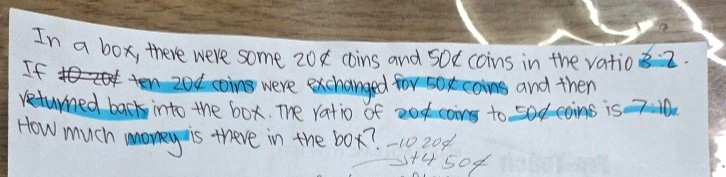 In a box, there were some 20¢ coins and 50¢ coins in the ratio 3:2.
If 10 20¢ ten 20¢ coins were exchanged for 50¢ coins and then
returned back into the box. The ratio of 20¢ coins to 50¢ coins is 7:10.
How much money is there in the box? -10 20¢
+4 50¢